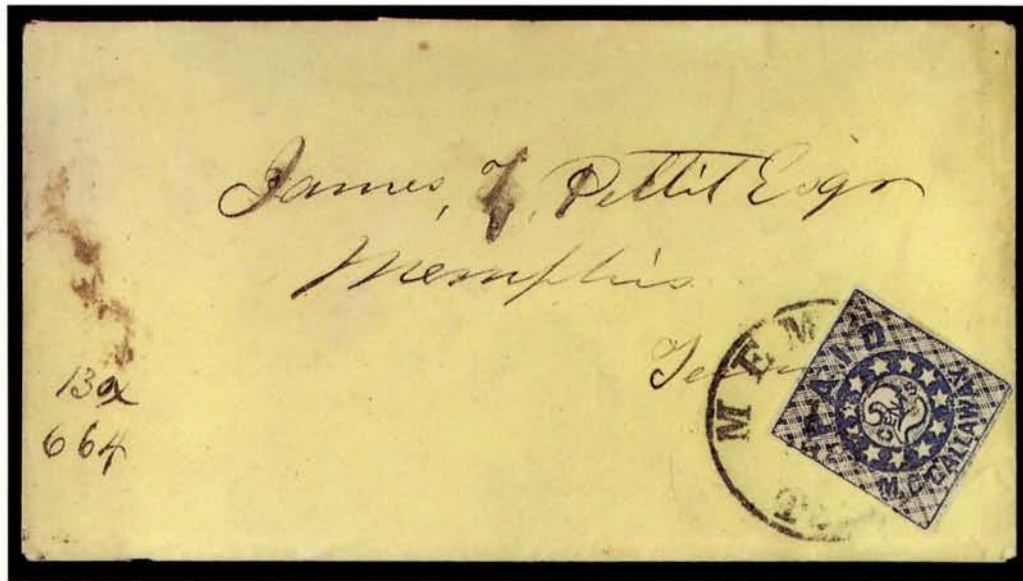 James, F. Pettit Esqr
Memphis
130x
664
MEM
PAID
2
CENTS
M.C. CALLAWAY